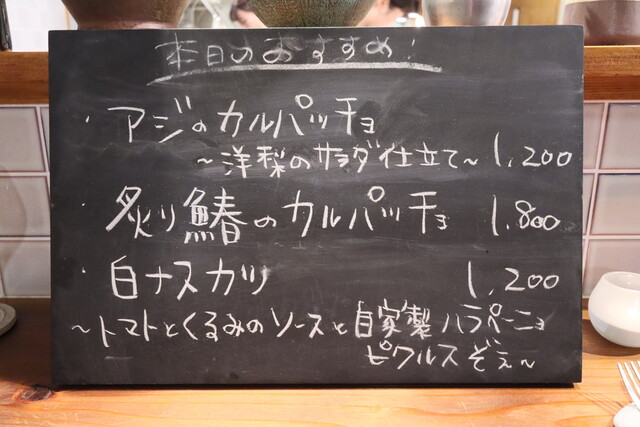 本日のおすすめ!
・アジのカルパッチョ
～洋梨のサラダ仕立て～ 1,200
・炙り鰆のカルパッチョ 1,800
・白ナスカツ 1,200
～トマトとくるみのソースと自家製ハラペーニョ
ピクルスぞぇ～